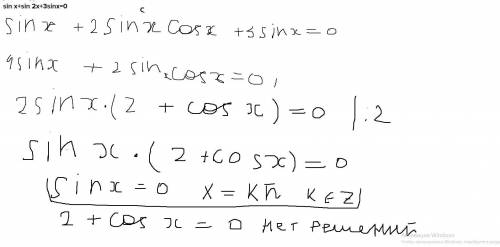 sin x+sin 2x+3sinx=0
c
sinx + 2 sinx cosx + 3 sinx = 0
4sinx + 2 sinx cosx = 0,
2sinx·(2 + cos x) = 0 |:2
sin x·(2+cosx) = 0
sinx = 0 x = kπ k∈Z
2 + cos x = 0 нет решений